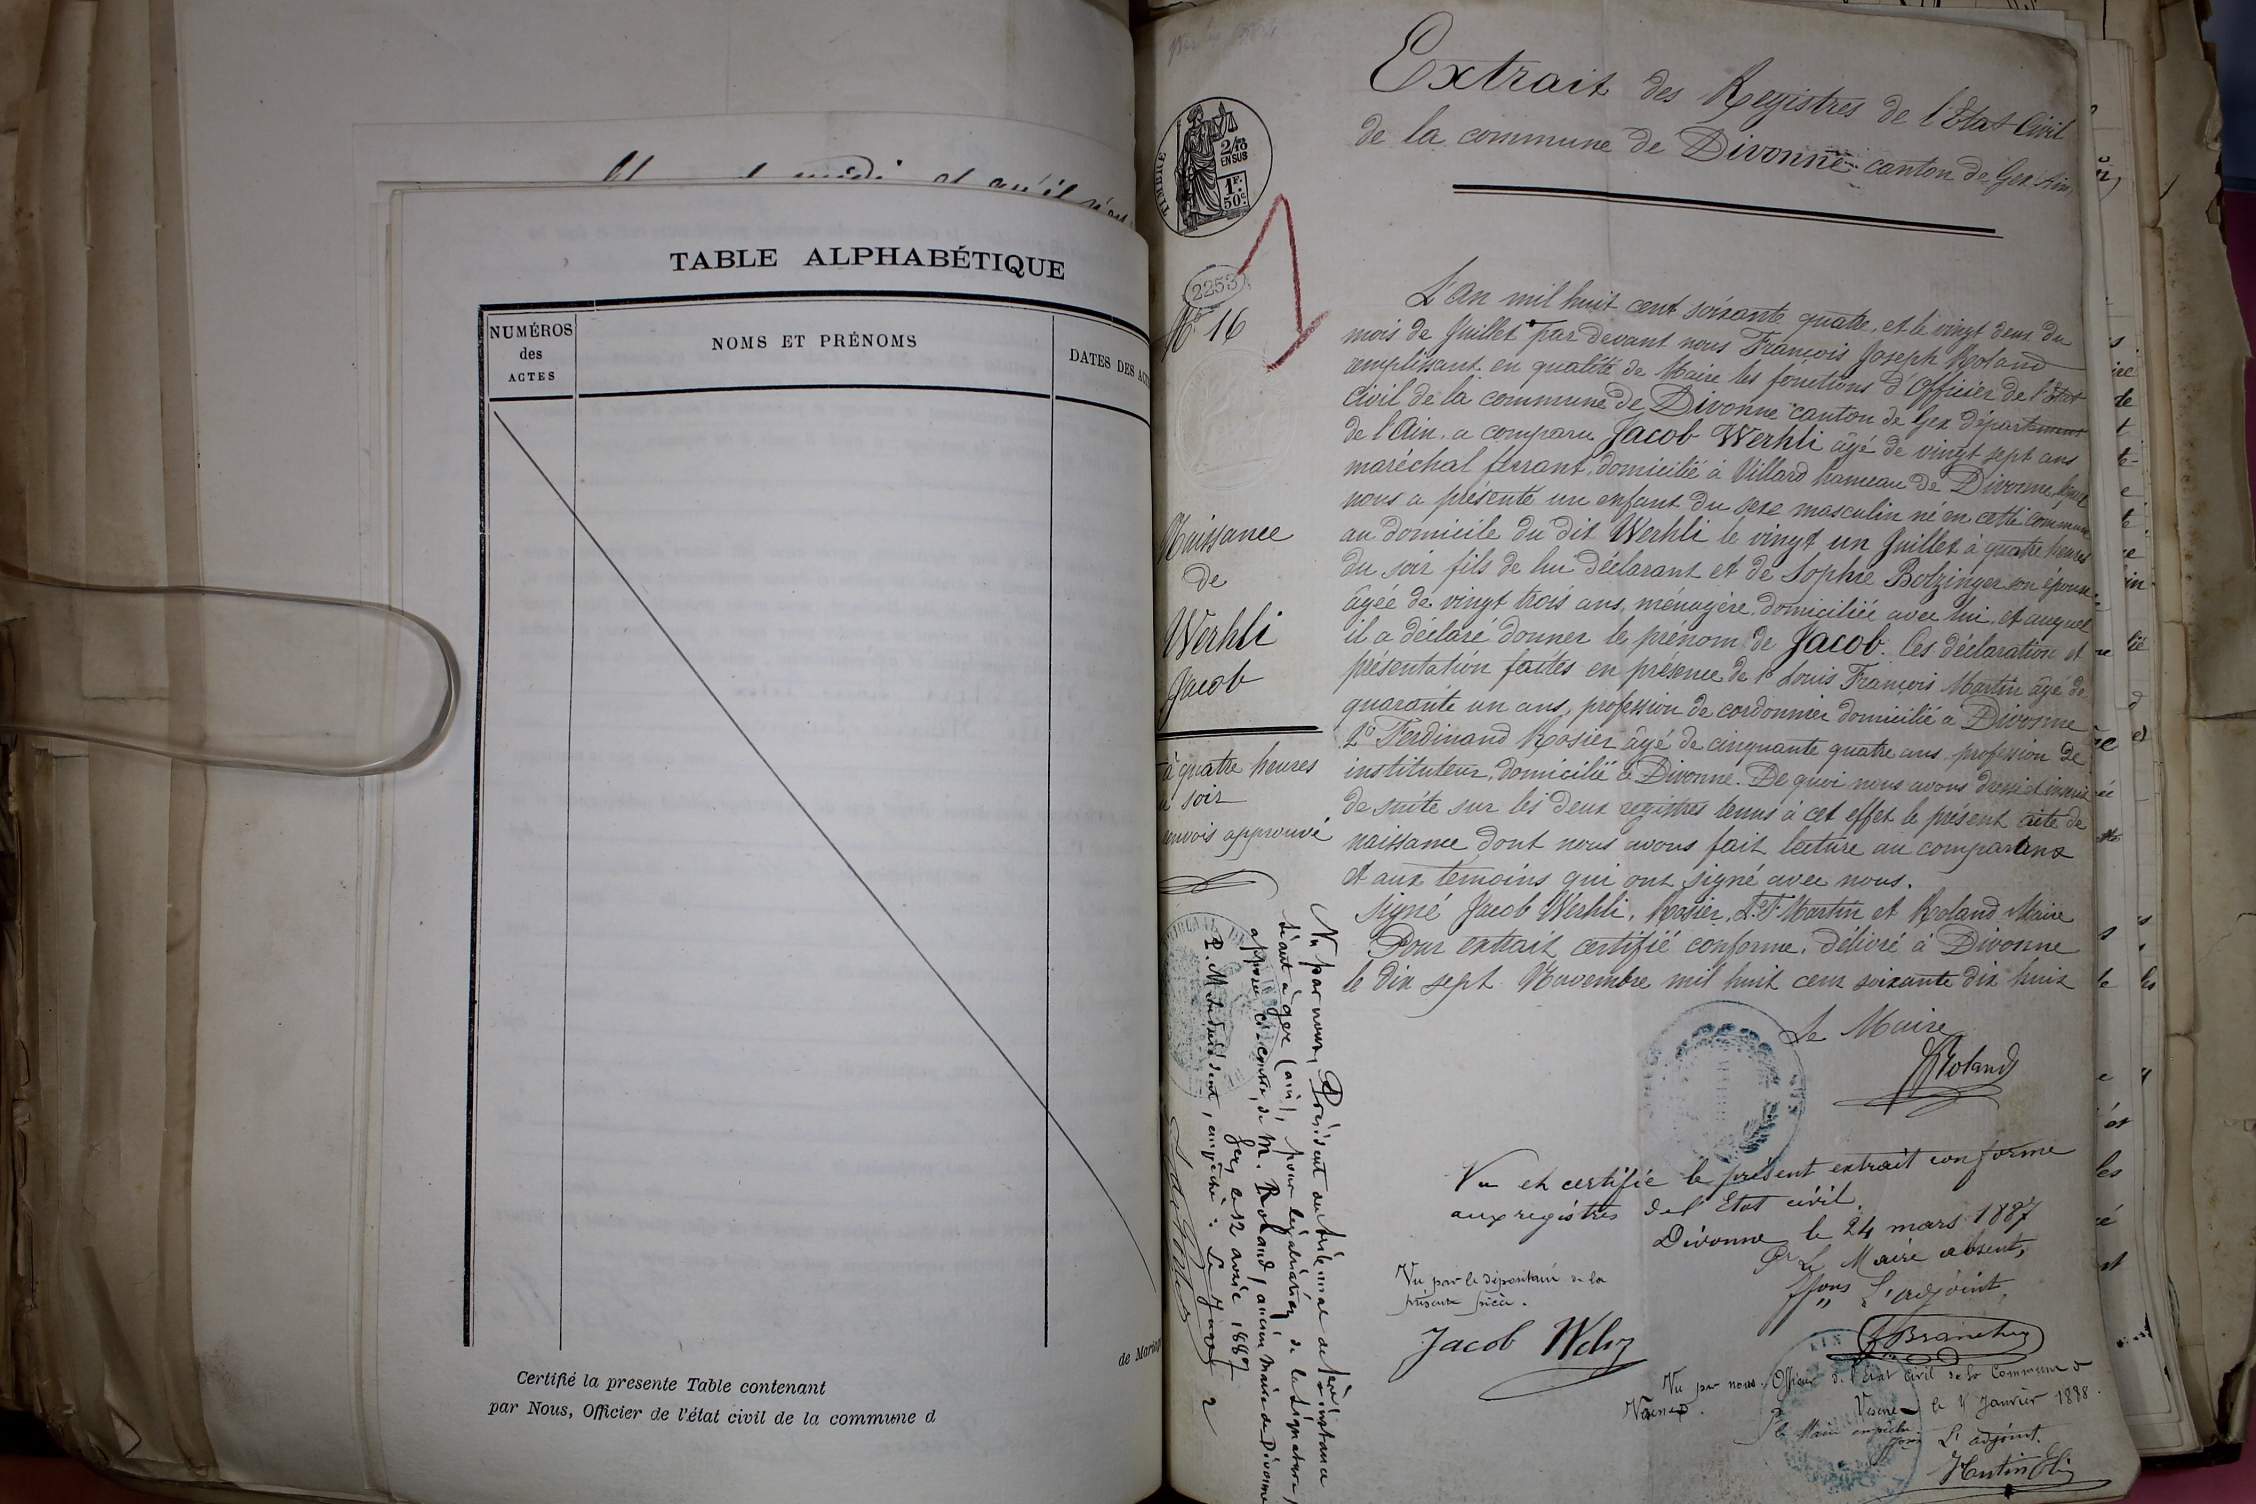 TABLE ALPHABÉTIQUE
NUMÉROS
des
ACTES
NOMS ET PRÉNOMS
DATES DES
Certifié la presente Table contenant
par Nous, Officier de l'état civil de la commune d
de
TIMBRE
2/10
EN SUS
1F.
50c.
2253
No 16
Naissance
de
Werhli
Jacob
à quatre heures
soir
approuvé
Extrait des Registres de l'Etat Civil
de la commune de Divonne canton de Gex Ain
L'An mil huit cent soixante quatre, et le vingt deux du
mois de Juillet par devant nous François Joseph Roland
remplissant en qualité de Maire les fonctions d'Officier de l'Etat
Civil de la commune de Divonne canton de Gex département
de l'Ain, a comparu Jacob Werhli âgé de vingt sept ans
maréchal ferrant, domicilié à Villard hameau de Divonne, lequel
nous a présenté un enfant du sexe masculin né en cette commune
au domicile du dit Werhli le vingt un Juillet à quatre heures
du soir fils de lui déclarant et de Sophie Botzinger son épouse
âgée de vingt trois ans, ménagère, domiciliée avec lui, et auquel
il a déclaré donner le prénom de Jacob. Ces déclaration et
présentation faites en présence de 1o Louis François Martin âgé de
quarante un ans, profession de cordonnier domicilié à Divonne
2o Ferdinand Rosier âgé de cinquante quatre ans profession de
instituteur, domicilié à Divonne. De quoi nous avons dressé et inscrit
de suite sur les deux registres tenus à cet effet le présent acte de
naissance dont nous avons fait lecture au comparant
et aux témoins qui ont signé avec nous.
Signé Jacob Werhli, Rosier, L.F. Martin et Roland Maire
Pour extrait certifié conforme, délivré à Divonne
le dix sept Novembre mil huit cent soixante dix huit
Le Maire
Roland
Vu et certifié le présent extrait conforme
aux registres de l'Etat civil.
Divonne le 24 mars 1887
Pr Le Maire absent,
L'adjoint,
Vu par le dépositaire de la
présente pièce.
Jacob
Vu par nous, Officier de l'Etat Civil de la Commune
le Janvier 1888
Le Maire empêché
L'adjoint.
Vu par nous, Président du tribunal de première instance
séant à Gex (ain), pour légalisation de la signature,
apposée ci-contre, de M. Roland, ancien maire de Divonne
Gex, le 12 avril 1887
P. M. le Président, empêché : Le Juge